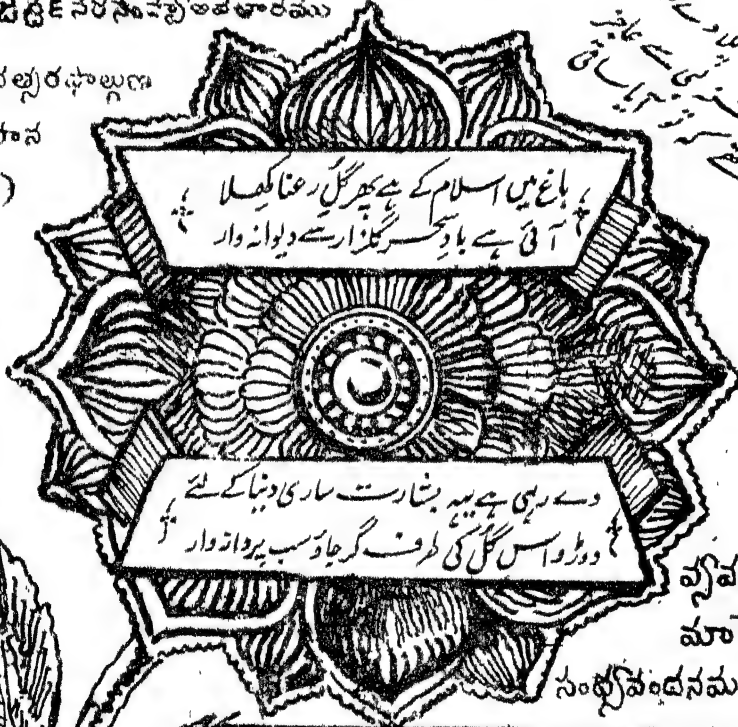 నరసింహ అవతారము
త్సరఫాల్గుణ
باغ میں اسلام کے ہے پھر گلِ رعنا کھلا
آئی ہے بادِ سحر گلزار سے دیوانہ وار
دے رہی ہے یہ بشارت ساری دنیا کے لئے
دوڑو اس گل کی طرف گر جاؤ سب پروانہ وار
మా
సంధ్యావందనము